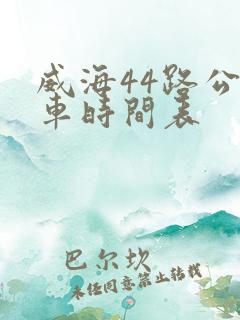 威海44路公
車時間表
巴尔坎
未经同意禁止转载